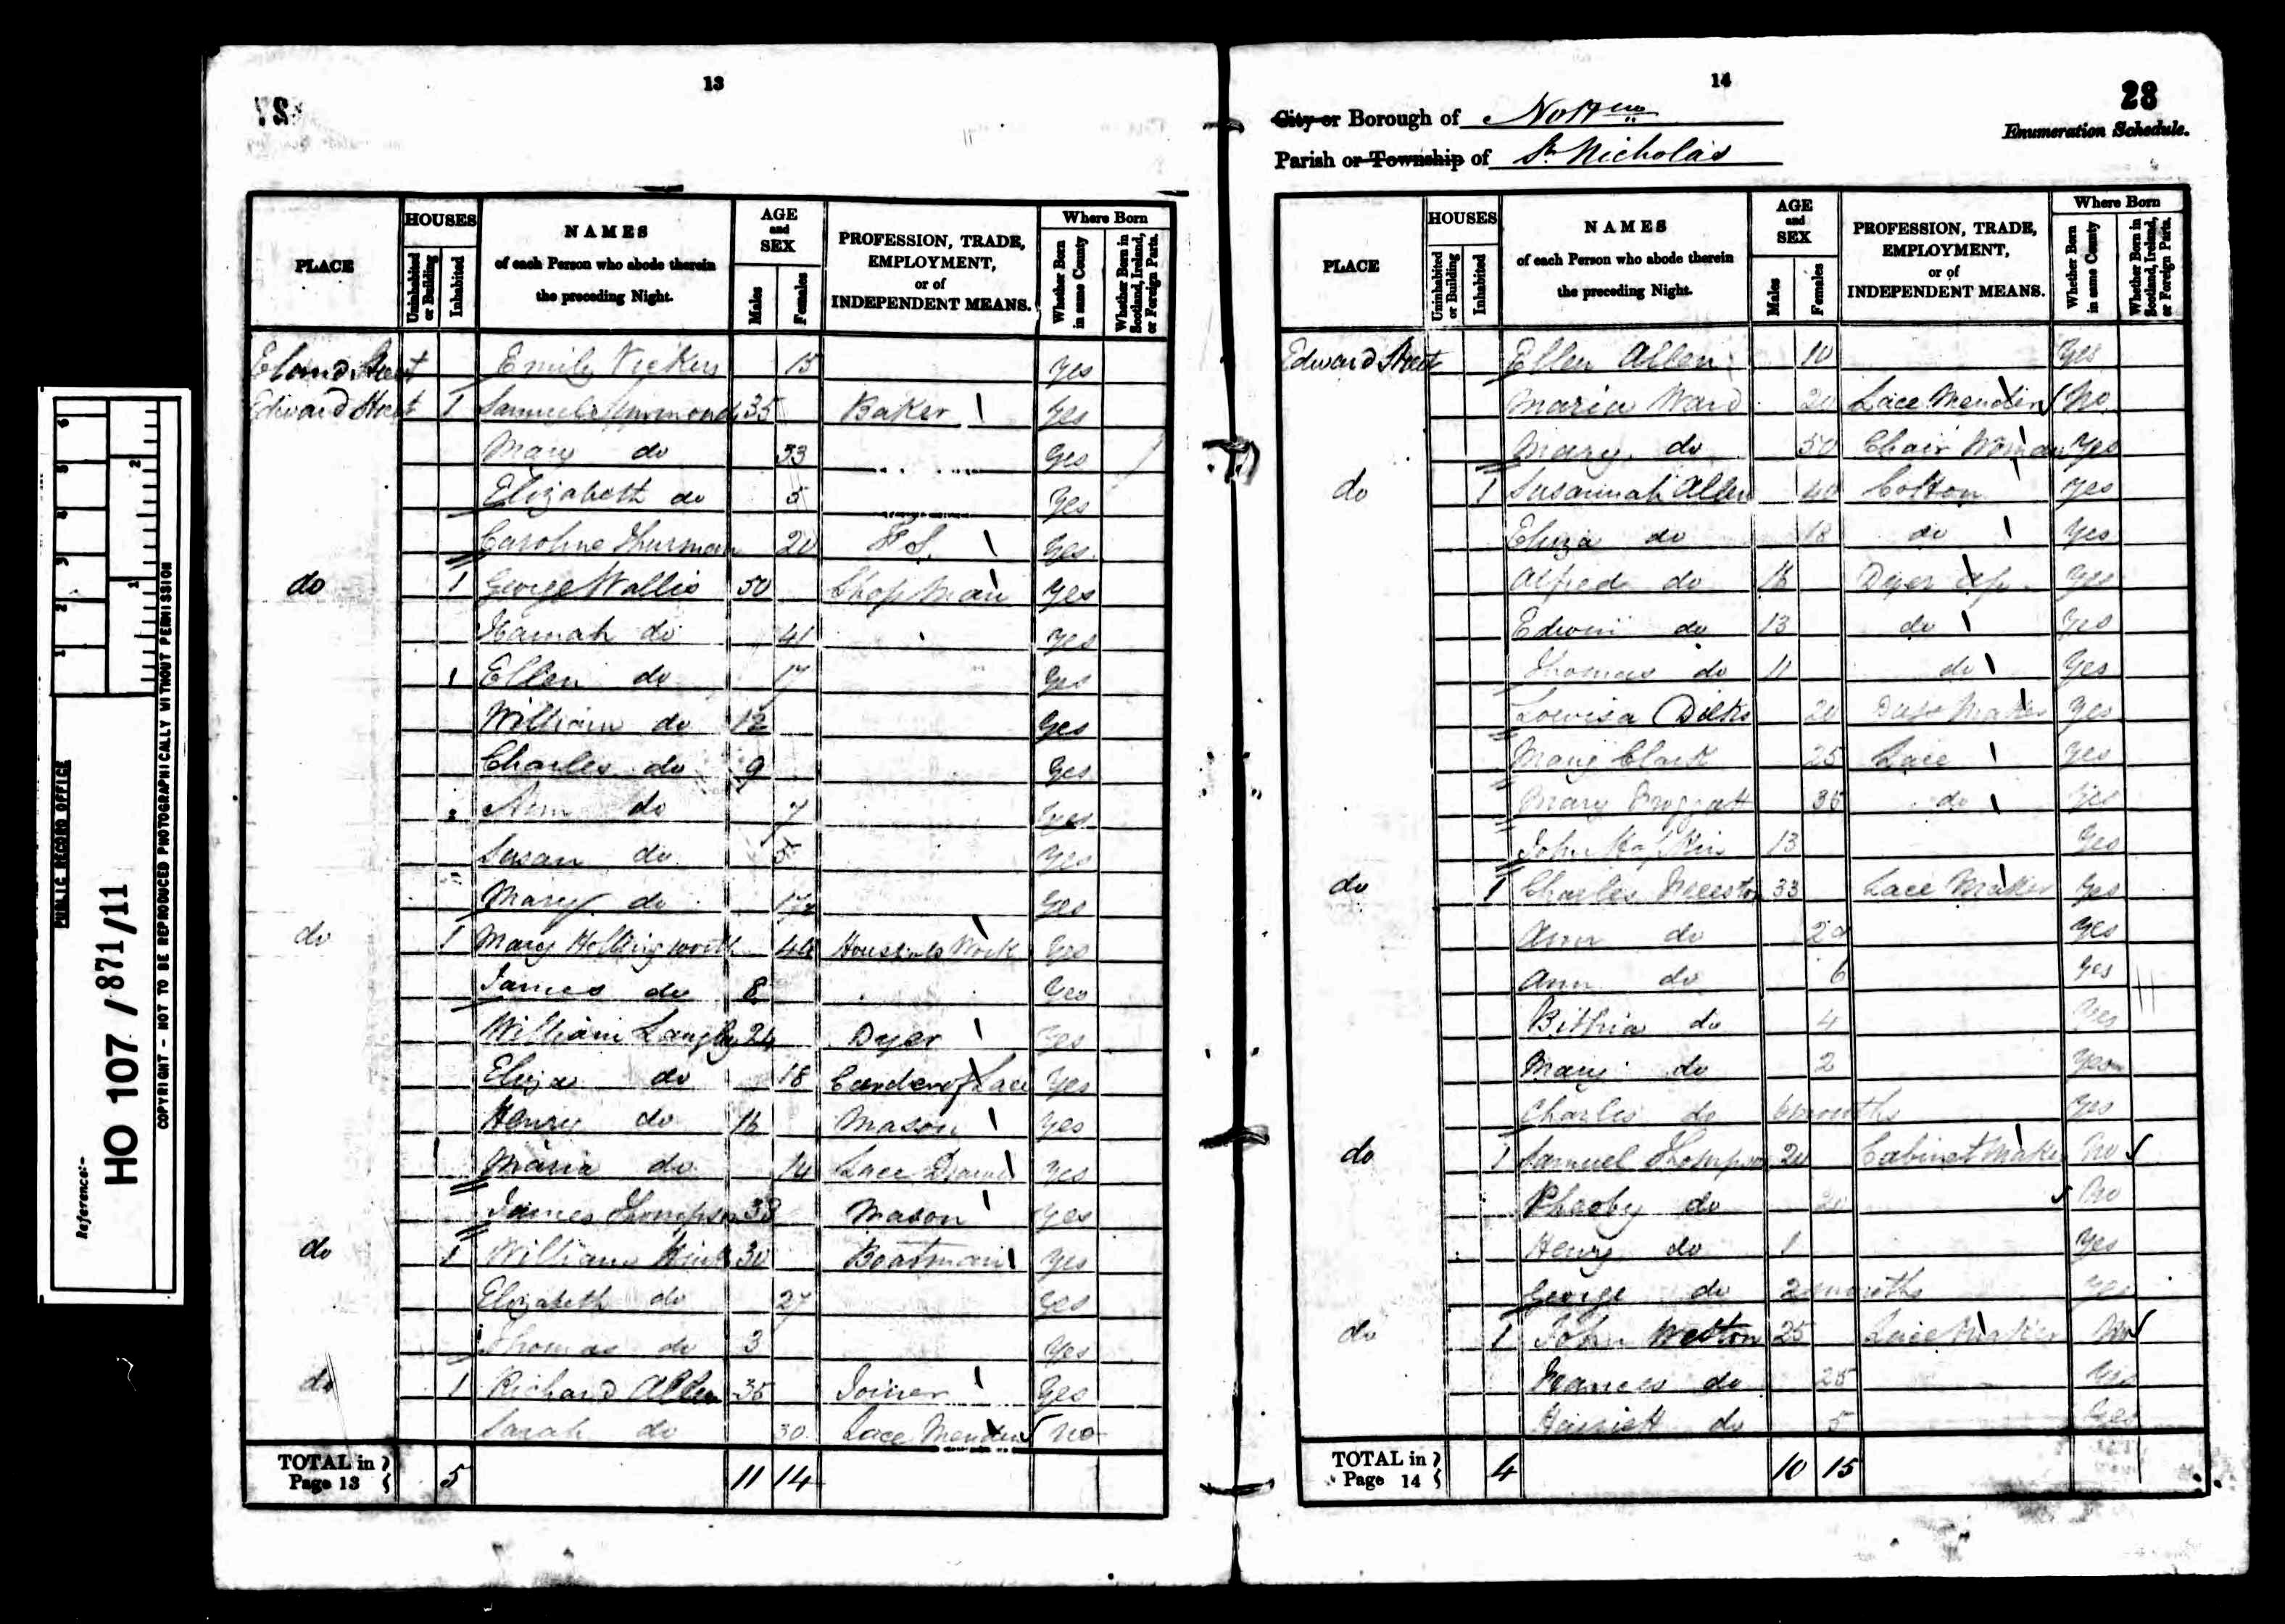 13
PLACE
HOUSES
Uninhabited or Building
Inhabited
NAMES
of each Person who abode therein
the preceding Night.
AGE
and
SEX
Males
Females
PROFESSION, TRADE,
EMPLOYMENT,
or of
INDEPENDENT MEANS.
Where Born
Whether Born in same County
Whether Born in Scotland, Ireland, or Foreign Parts.
Eland Street Emily Vickers 15 Yes
Edward Street 1 Samuel 35 Baker Yes
Mary do 33 Yes
Elizabeth do 5 Yes
Caroline Thurman 20 F S. Yes
do 1 George Wallis 50 Shop Man Yes
Hannah do 41 Yes
Ellen do 17 Yes
William do 12 Yes
Charles do 9 Yes
Ann do 7 Yes
Susan do 5 Yes
Mary do Yes
do 1 Mary Hollingworth 44 Work Yes
James do 8 Yes
William Langley 24 Dyer Yes
Eliza do 18 Carder of Lace Yes
Henry do 16 Mason Yes
Maria do 14 Lace Yes
James Thompson 38 Mason Yes
do 1 William 30 Boatman Yes
Elizabeth do 27 Yes
Thomas do 3 Yes
do 1 Richard Allen 35 Joiner Yes
Sarah do 30 Lace Mender No
TOTAL in Page 13 5 11 14
14
28
City or Borough of Nottm
Enumeration Schedule.
Parish or Township of St Nicholas
PLACE
HOUSES
Uninhabited or Building
Inhabited
NAMES
of each Person who abode therein
the preceding Night.
AGE
and
SEX
Males
Females
PROFESSION, TRADE,
EMPLOYMENT,
or of
INDEPENDENT MEANS.
Where Born
Whether Born in same County
Whether Born in Scotland, Ireland, or Foreign Parts.
Edward Street Ellen Allen 10 Yes
Maria Ward 20 Lace Mender No
Mary do 50 Chair Woman Yes
do 1 Susannah Allen 40 Cotton Yes
Eliza do 18 do Yes
Alfred do 16 Dyer Ap. Yes
Edwin do 13 do Yes
Thomas do 11 do Yes
Lowisa Dicks 20 Maker Yes
Mary Clark 25 Lace Yes
Mary Froggatt 35 do Yes
John 13 Yes
do 1 Charles 33 Lace Maker Yes
Ann do Yes
Ann do 6 Yes
Bithia do 4 Yes
Mary do 2 Yes
Charles do 6 months Yes
do 1 Samuel Thompson 20 Cabinet Maker No
Pheoby do 20 No
Henry do 1 Yes
George do 2 months Yes
do 1 John Weston 25 Lace Maker No
Frances do 25 Yes
Harriett do 5 Yes
TOTAL in Page 14 4 10 15
PUBLIC RECORD OFFICE
Reference:-
HO 107 / 871/11
COPYRIGHT - NOT TO BE REPRODUCED PHOTOGRAPHICALLY WITHOUT PERMISSION